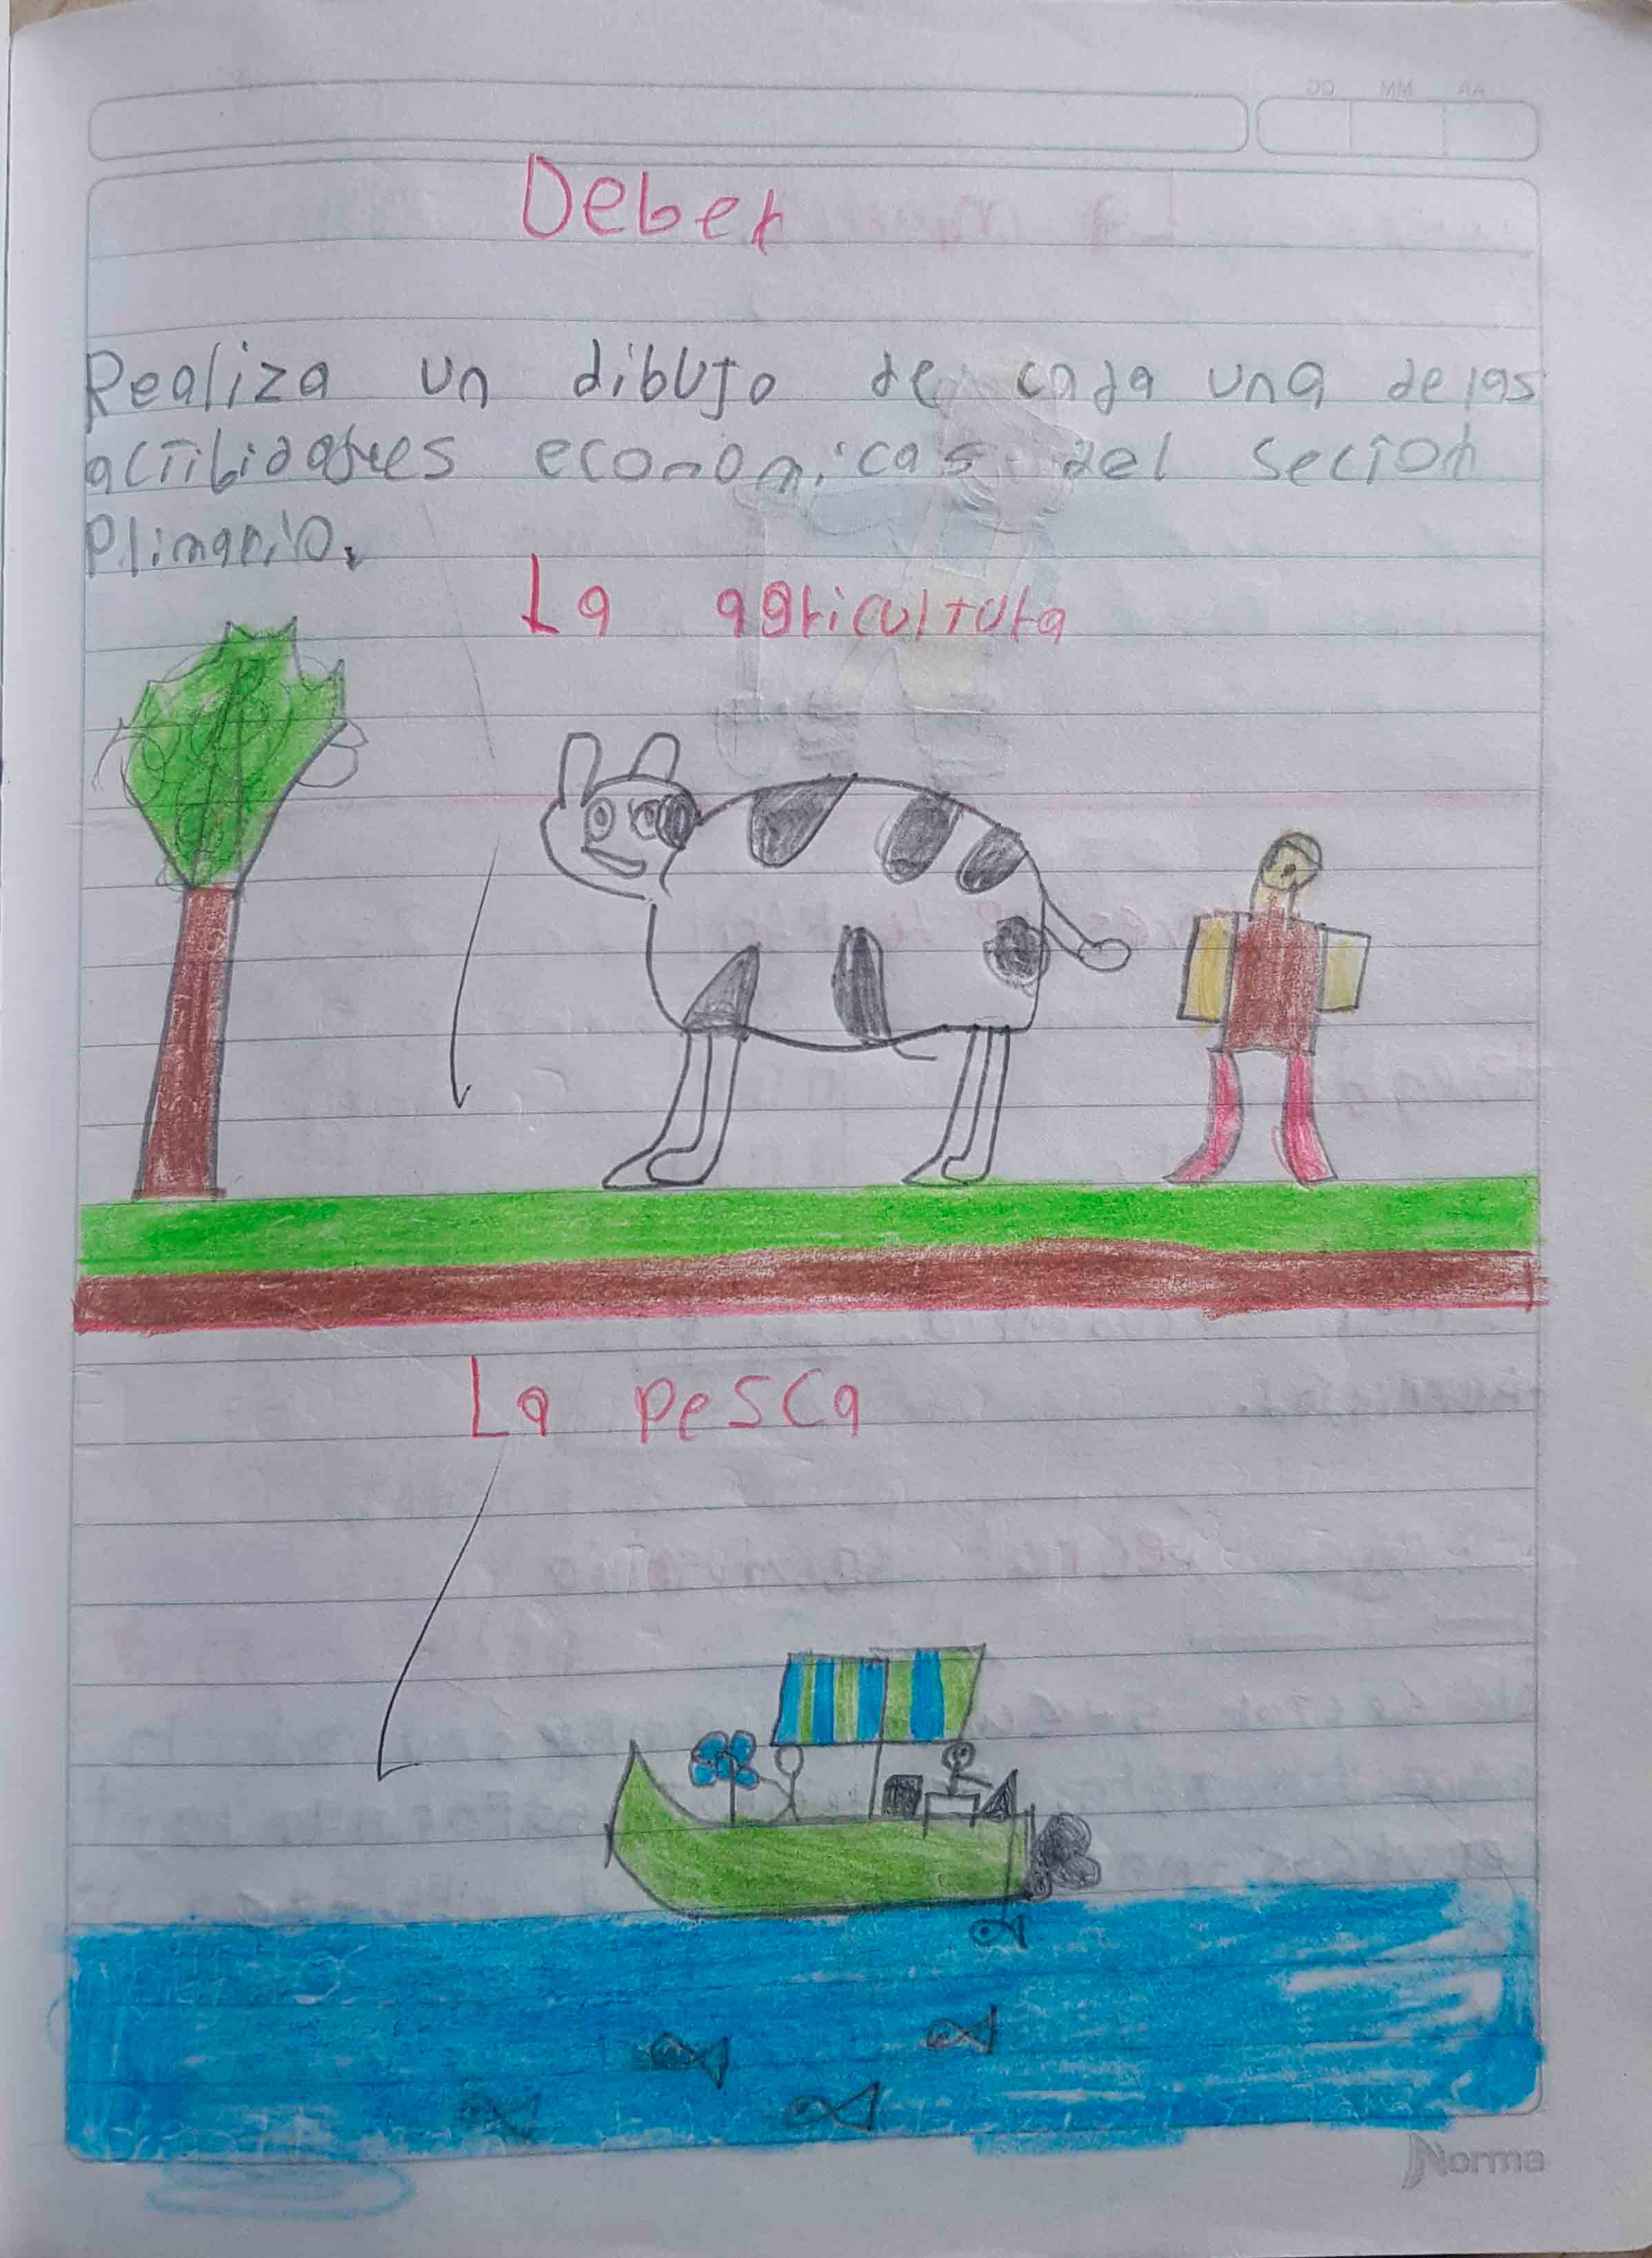 Deber
Realiza un dibujo de cada una de las
actibidades economicas del sector
Plimario.
La agricultura
La pesca
Norma